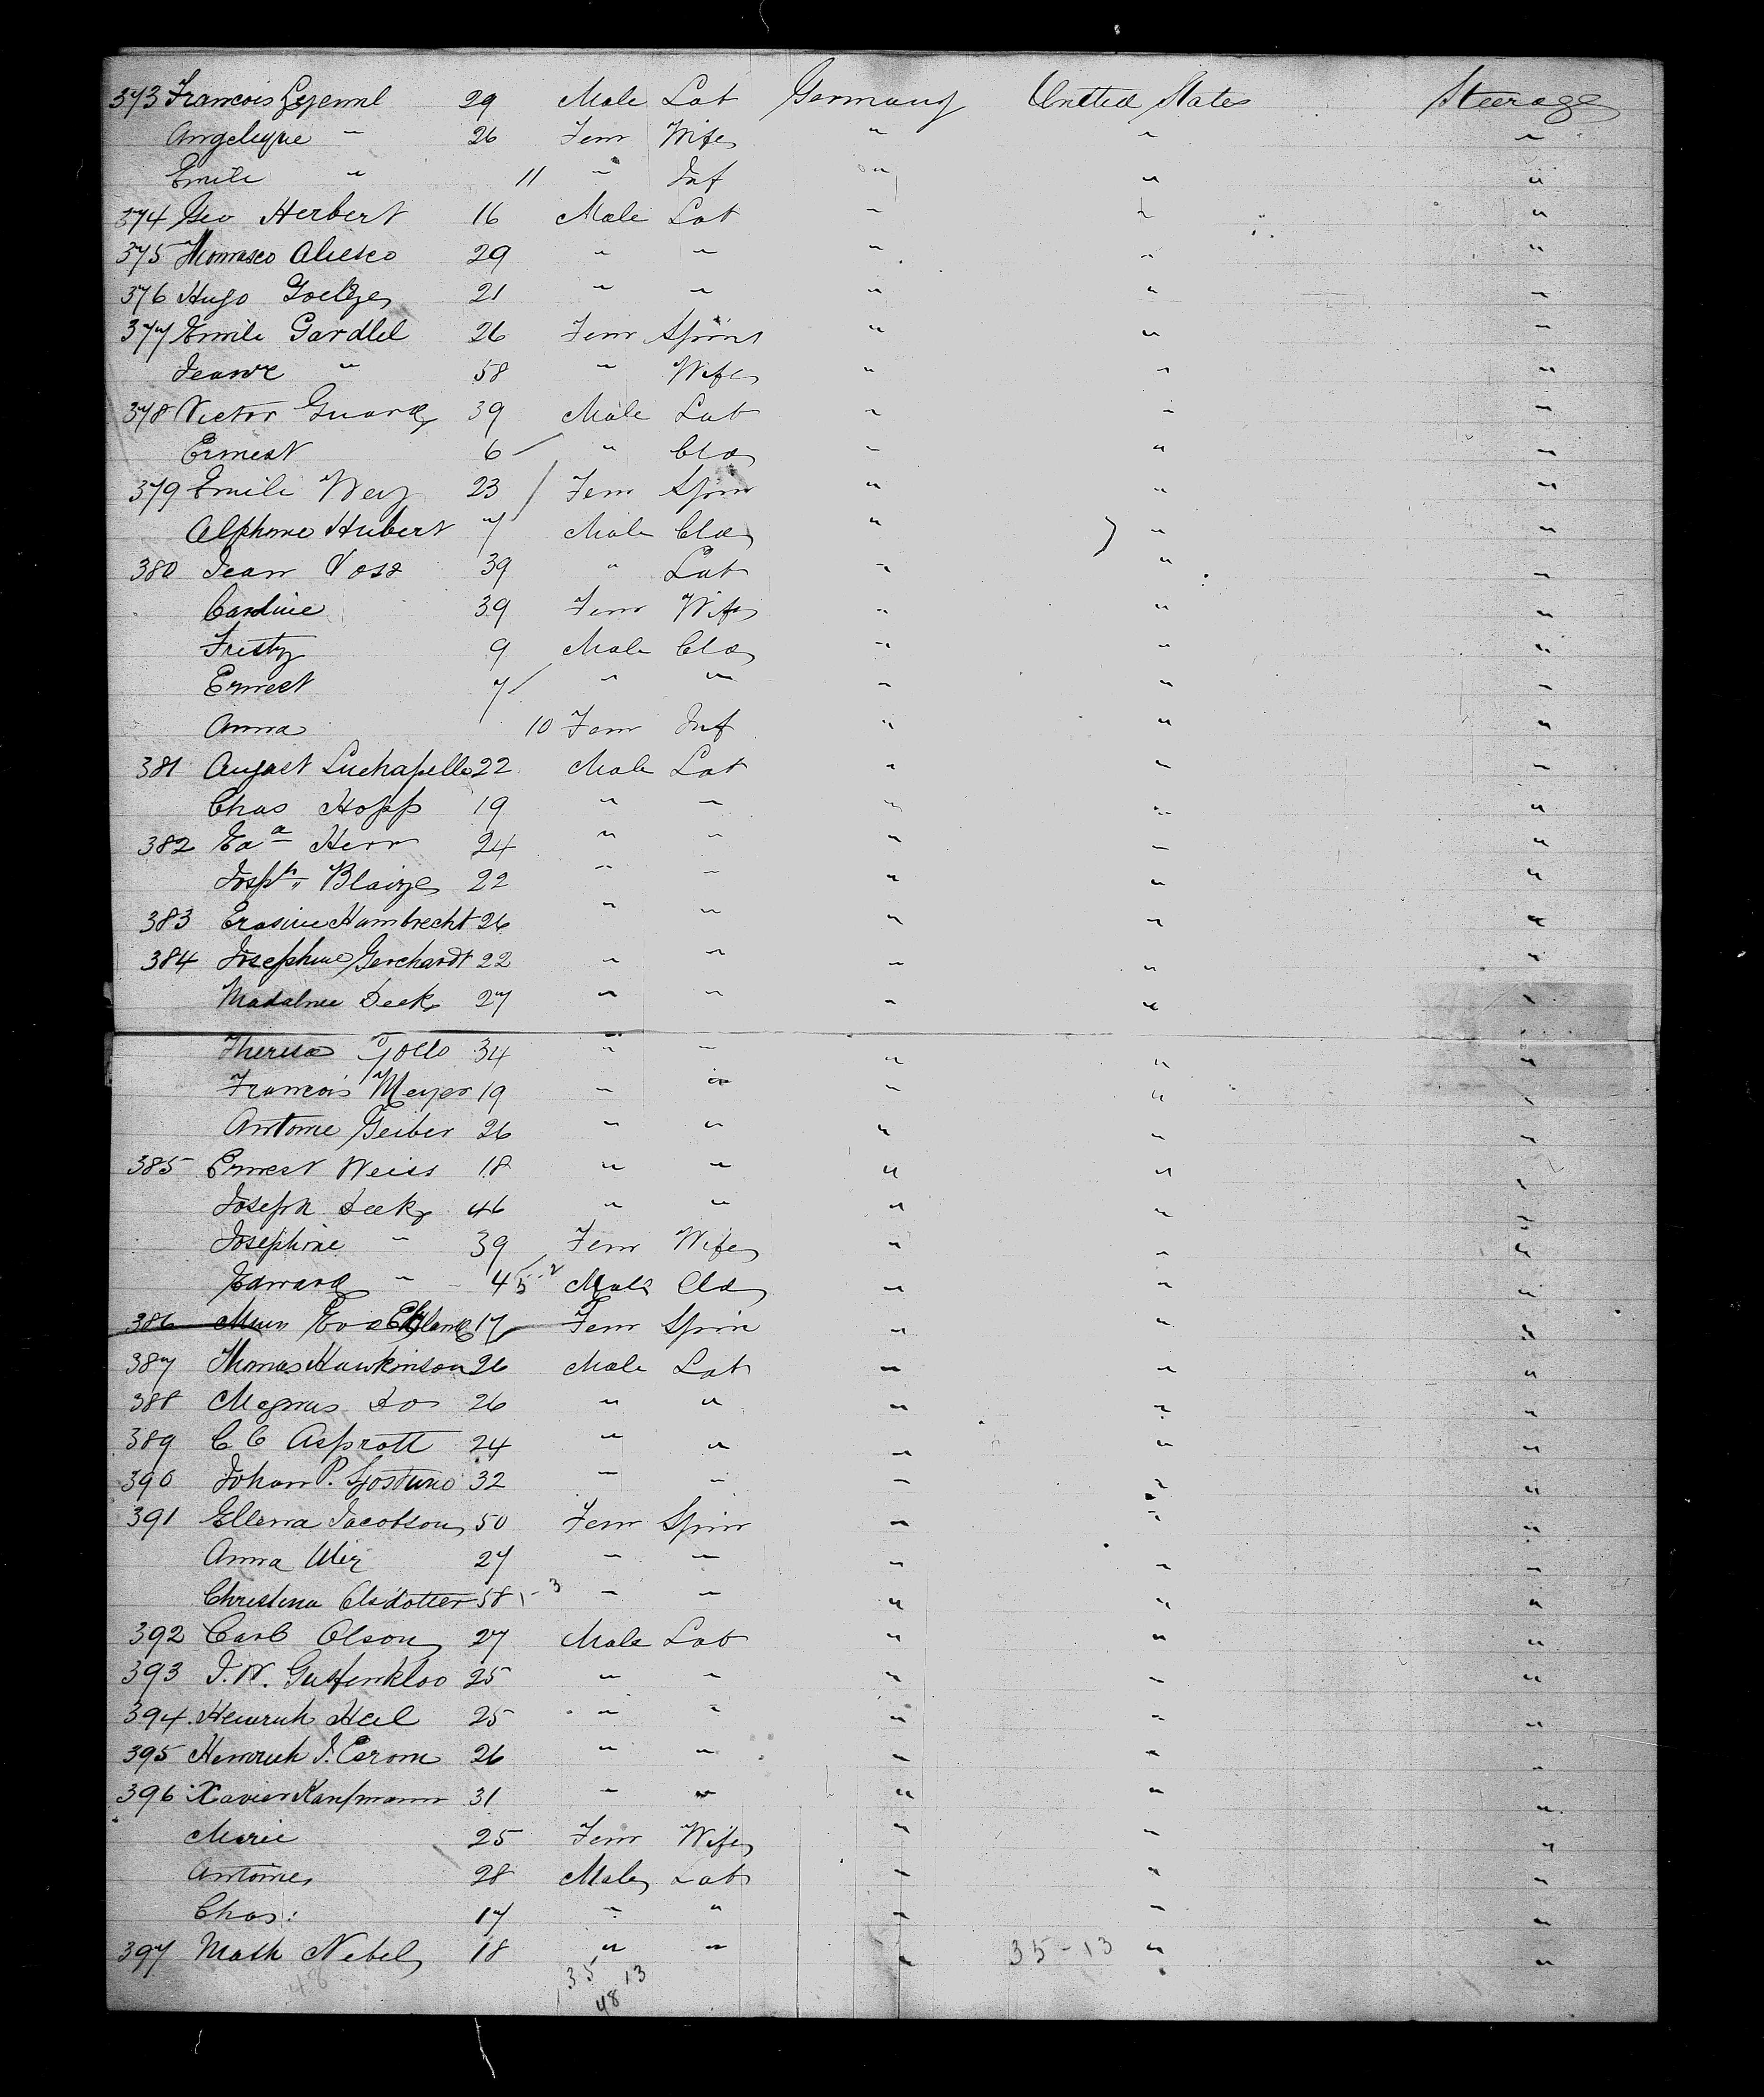 373 Francois Lejeune 29 Male Lab Germany United States Steerage
Angelique " 26 Fem Wife " " "
Emile " 11 " Inf " " "
374 Geo Herbert 16 Male Lab " " "
375 29 " " " " "
376 Hugo 21 " " " " "
377 Emile Gardlel 26 Fem Spins " " "
Jeanne " 58 " Wife " " "
378 Victor Guard 39 Male Lab " " "
Ernest 6 " Cld " " "
379 Emile Wey 23 Fem Spin " " "
Alphonse Hubert 7 Male Cld " " "
380 Jean Voss 39 " Lab " " "
Caroline 39 Fem Wife " " "
Fritz 9 Male Cld " " "
Ernest 7 " " " " "
Anna 10 Fem Inf " " "
381 August Luchapelle 22 Male Lab " " "
Chas Hopp 19 " " " " "
382 Herr 24 " " " " "
Josph Blaize 22 " " " " "
383 Erasme Hambrecht 26 " " " " "
384 Josephine Gerchardt 22 " " " " "
Madalme Deck 27 " " " " "
Theresa 34 " " " " "
Francois Meyer 19 " " " " "
Antoine Geiber 26 " " " " "
385 Ernest Weiss 18 " " " " "
Joseph Deck 46 " " " " "
Josephine " 39 Fem Wife " " "
Edward " 4 5-2 Male Cld " " "
386 Eva 17 Fem Spin " " "
387 Thomas Hawkinson 26 Male Lab " " "
388 Magnus Do 26 " " " " "
389 C C Asprott 24 " " " " "
390 Johan P. 32 " " " " "
391 Ellena Jacobson 50 Fem Spin " " "
Anna 27 " " " " "
Christina Olsdotter 58 - 3 " " " " "
392 Carl Olson 27 Male Lab " " "
393 25 " " " " "
394 Heinrich Heil 25 " " " " "
395 Heinrich J. 26 " " " " "
396 Xavier Kaufmann 31 " " " " "
Marie 25 Fem Wife " " "
Antoine 28 Male Lab " " "
Chas: 17 " " " " "
397 Math Nebel 18 " " " 35-13 " "
48 35 13
48